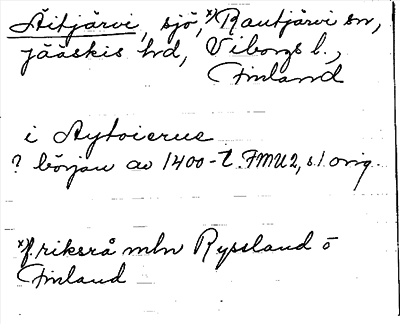 Äitjärvi, sjö, x) Rautjärvi sn,
jääskis hd, Viborgs l.,
Finland
i Aytoierue
? början av 1400-t. FMU 2, s. 1 orig.
x) f. riksrå mln Ryssland o
Finland